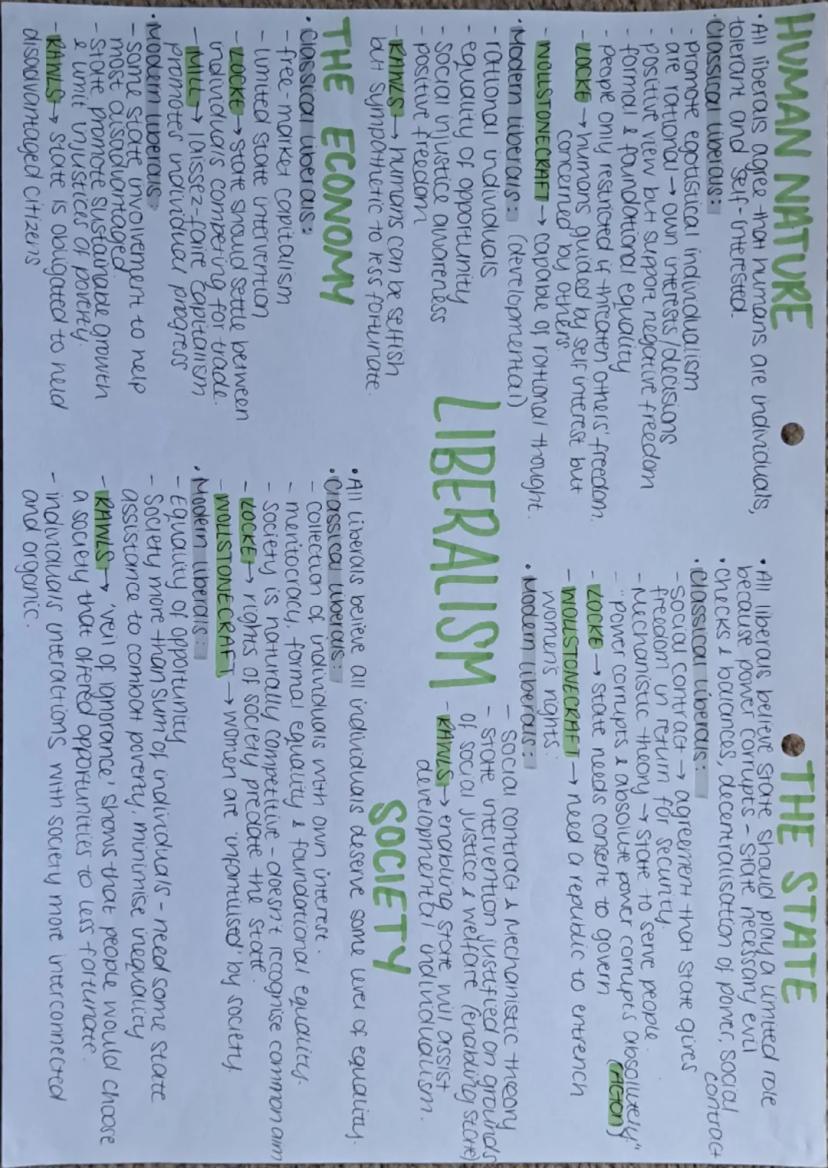 HUMAN NATURE
• All liberals agree that humans are individuals,
tolerant and self-interested.
• Classical liberals:
- promote egotistical individualism
- are rational → own interests/decisions
- positive view but support negative freedom
- formal & foundational equality
- people only restricted if threaten others' freedom.
- LOCKE → humans guided by self interest but
concerned by others.
- WOLLSTONECRAFT → capable of rational thought.
• Modern liberals: (developmental)
- rational individuals
- equality of opportunity
- social injustice awareness
- positive freedom
- RAWLS → humans can be selfish
but sympathetic to less fortunate.
THE ECONOMY
• Classical liberals:
- free-market capitalism
- limited state intervention
- LOCKE → state should settle between
individuals competing for trade.
- MILL → laissez-faire capitalism
promotes individual progress
• Modern liberals:
- some state involvement to help
most disadvantaged
- state promote sustainable growth
& limit injustices of poverty.
- RAWLS → state is obligated to need
disadvantaged citizens
LIBERALISM
THE STATE
• All liberals believe state should play a limited role
because power corrupts - state necessary evil
• checks & balances, decentralisation of power, social
contract
• Classical liberals:
- Social contract → agreement that state gives
freedom in return for security.
- Mechanistic theory → state to serve people.
- "power corrupts & absolute power corrupts absolutely"
(ACTON)
- LOCKE → state needs consent to govern
- WOLLSTONECRAFT → need a republic to entrench
women's rights.
• Modern liberals:
- social contract & mechanistic theory
- state intervention justified on grounds
of social justice & welfare (enabling state)
- RAWLS → enabling state will assist
developmental individualism.
SOCIETY
• All liberals believe all individuals deserve some level of equality.
• Classical liberals:
- collection of individuals with own interest.
- meritocracy, formal equality & foundational equality.
- society is naturally competitive - doesn't recognise common aim
- LOCKE → rights of society predate the state.
- WOLLSTONECRAFT → women are 'infantilised' by society.
• Modern liberals:
- Equality of opportunity
- Society more than sum of individuals - need some state
assistance to combat poverty, minimise inequality
- RAWLS → 'veil of ignorance' shows that people would choose
a society that offered opportunities to less fortunate.
- individuals interactions with society more interconnected
and organic.